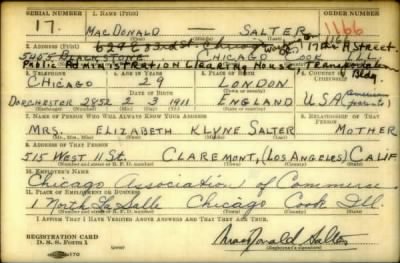 SERIAL NUMBER 1. NAME (Print) ORDER NUMBER
17. MACDONALD SALTER 1166
(First) (Middle) (Last)
2. ADDRESS (Print)
5465 BLACKSTONE CHICAGO COOK ILL.
Public Administration Clearing House
3. TELEPHONE 4. AGE IN YEARS 5. PLACE OF BIRTH 6. COUNTRY OF CITIZENSHIP
CHICAGO 29 LONDON
DATE OF BIRTH
DORCHESTER 2852 2 3 1911 ENGLAND U.S.A. (American parents)
7. NAME OF PERSON WHO WILL ALWAYS KNOW YOUR ADDRESS 8. RELATIONSHIP OF THAT PERSON
MRS. ELIZABETH KLYNE SALTER MOTHER
(Mr., Mrs., Miss) (First) (Middle) (Last)
9. ADDRESS OF THAT PERSON
515 WEST 11 St. CLAREMONT, (LOS ANGELES) CALIF
(Number and street or R. F. D. number) (Town) (County) (State)
10. EMPLOYER'S NAME
Chicago Association of Commerce
11. PLACE OF EMPLOYMENT OR BUSINESS
1 North La Salle Chicago Cook Ill.
(Number and street or R. F. D. number) (Town) (County) (State)
I AFFIRM THAT I HAVE VERIFIED ABOVE ANSWERS AND THAT THEY ARE TRUE.
REGISTRATION CARD
D. S. S. Form 1 MacDonald Salter
(Registrant's signature)